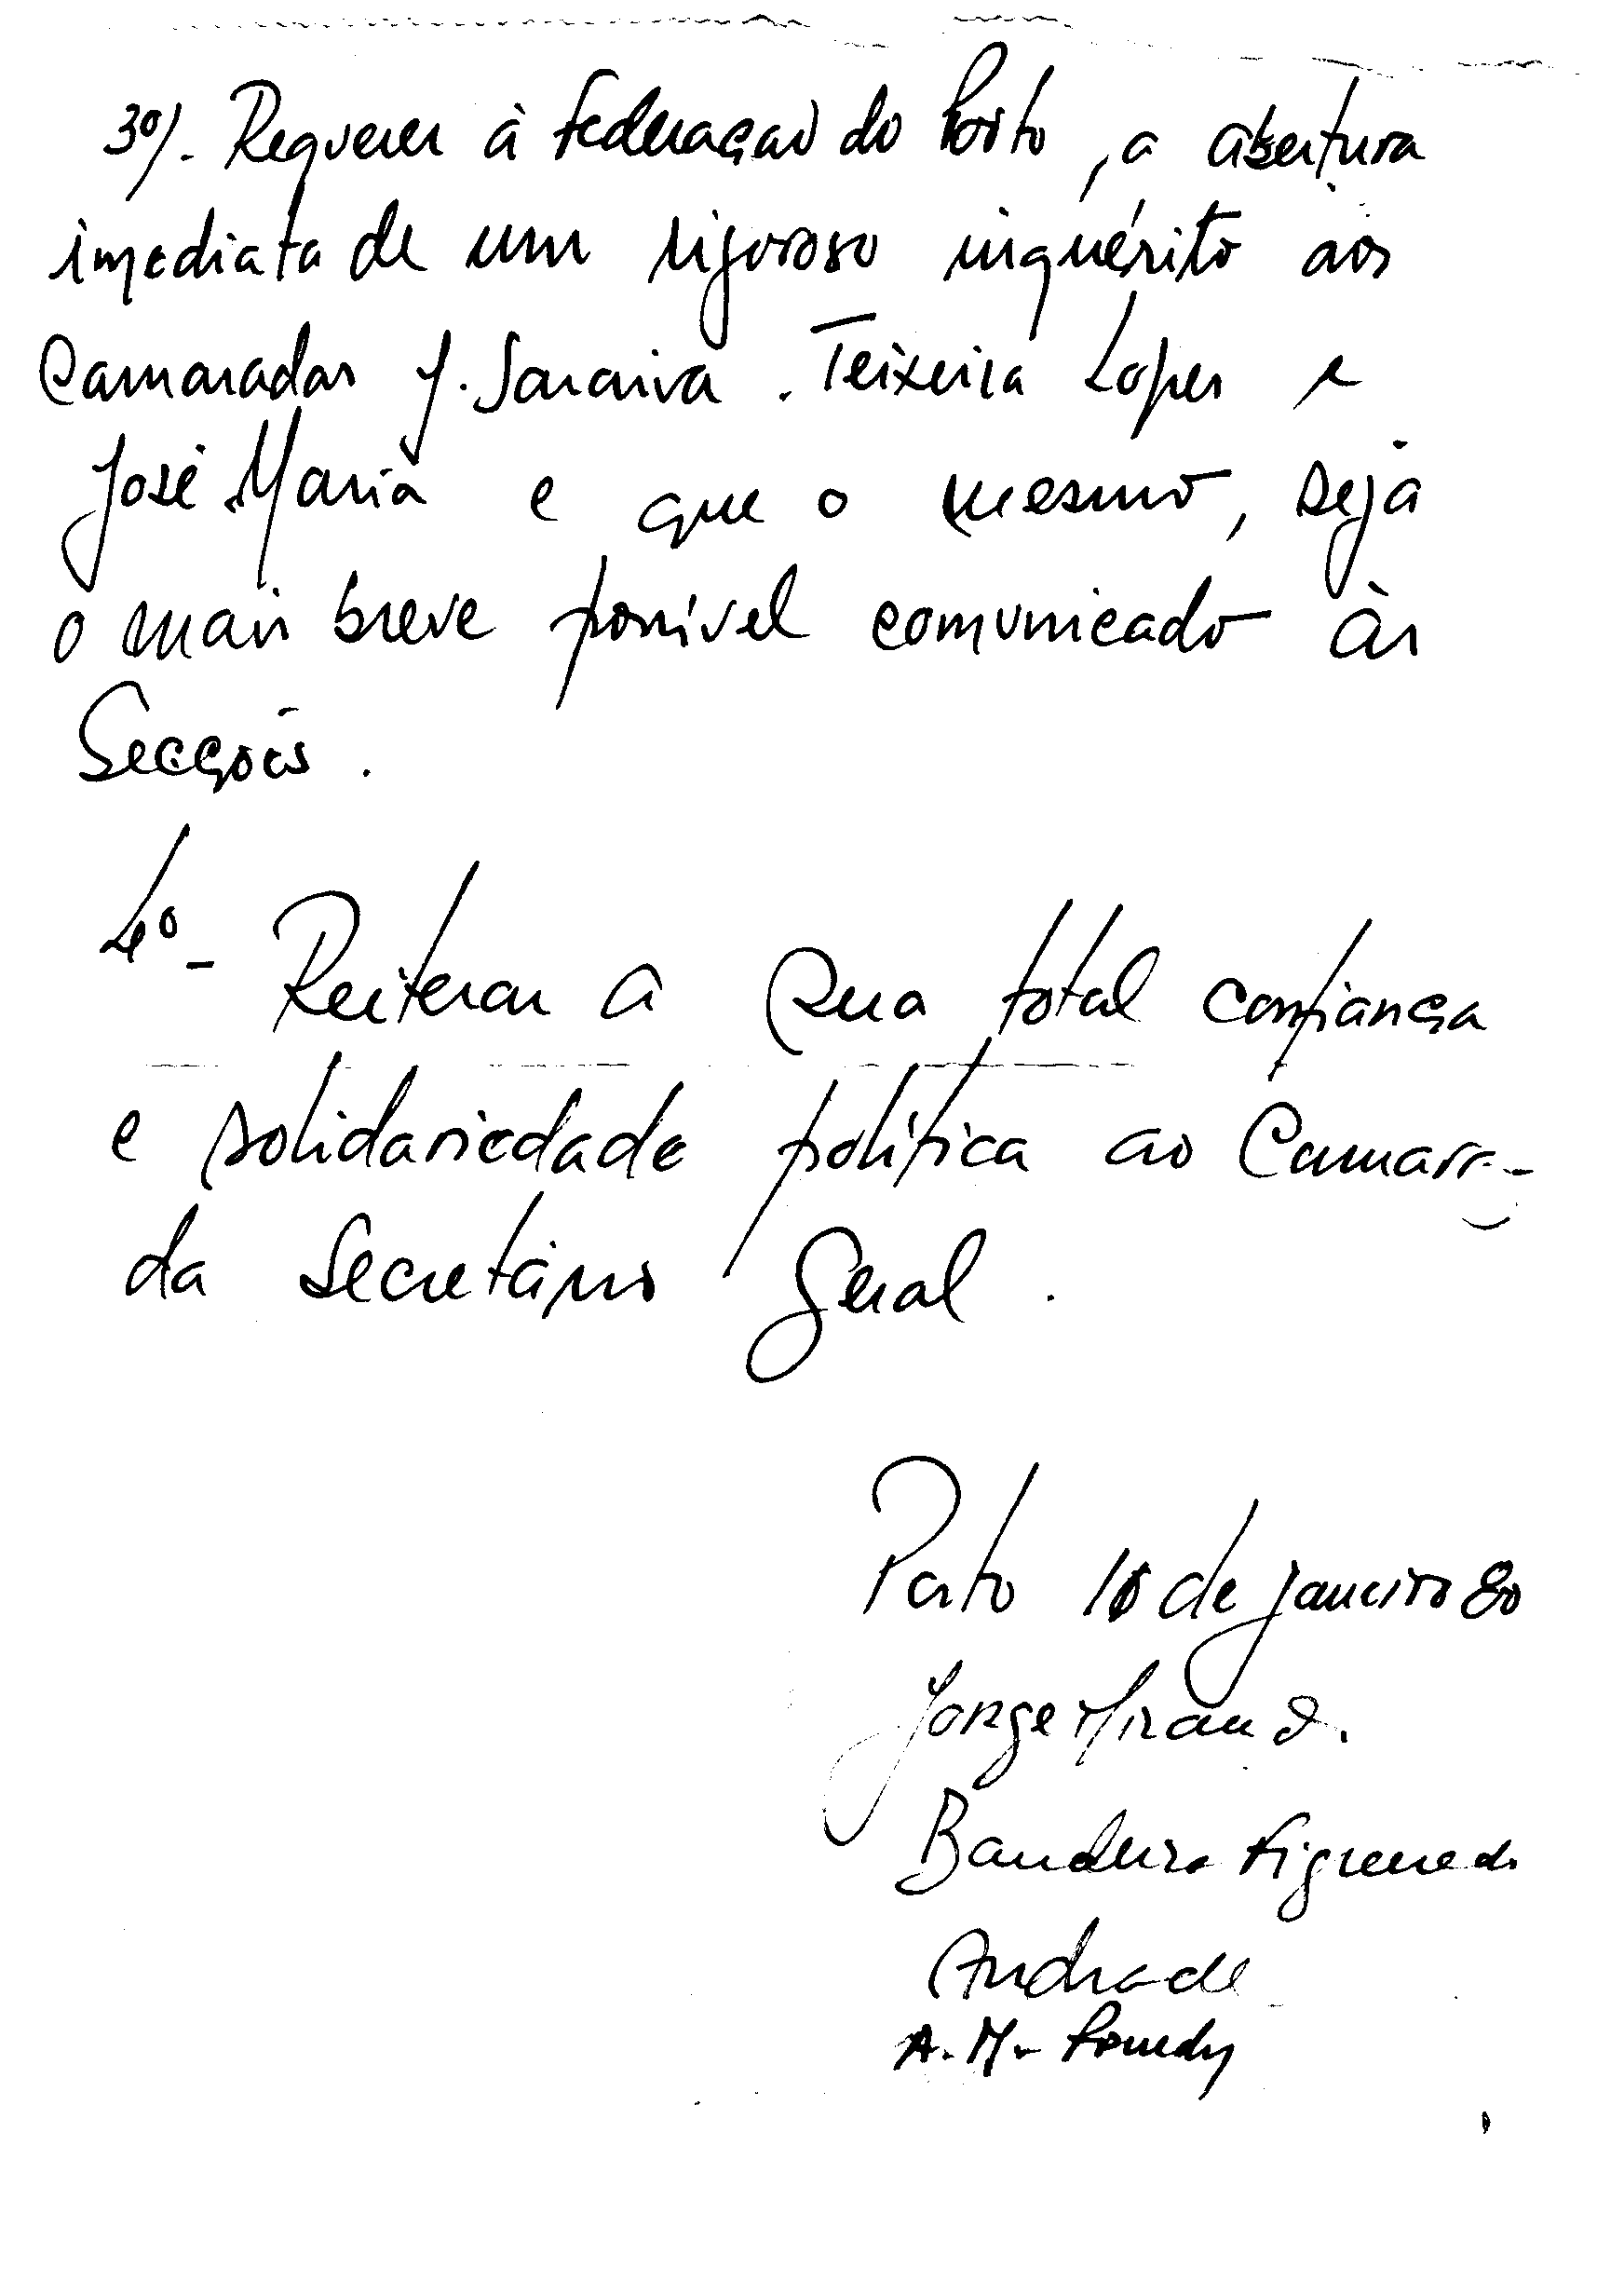 3º/. Requerer à Federação do Porto, a abertura
imediata de um rigoroso inquérito aos
Camaradas J. Saraiva. Teixeira Lopes e
José Maria e que o mesmo, seja
o mais breve possível comunicado às
Secções.
4º - Reiterar a sua total confiança
e solidariedade política ao Camara-
da Secretário Geral.
Porto de janeiro 80
Jorge Mirand.
Bandeira Figueiredo
Andrade
A. M.